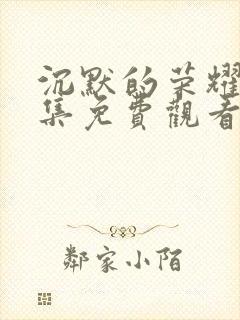 沉默的荣耀
集免費觀看
鄰家小陌